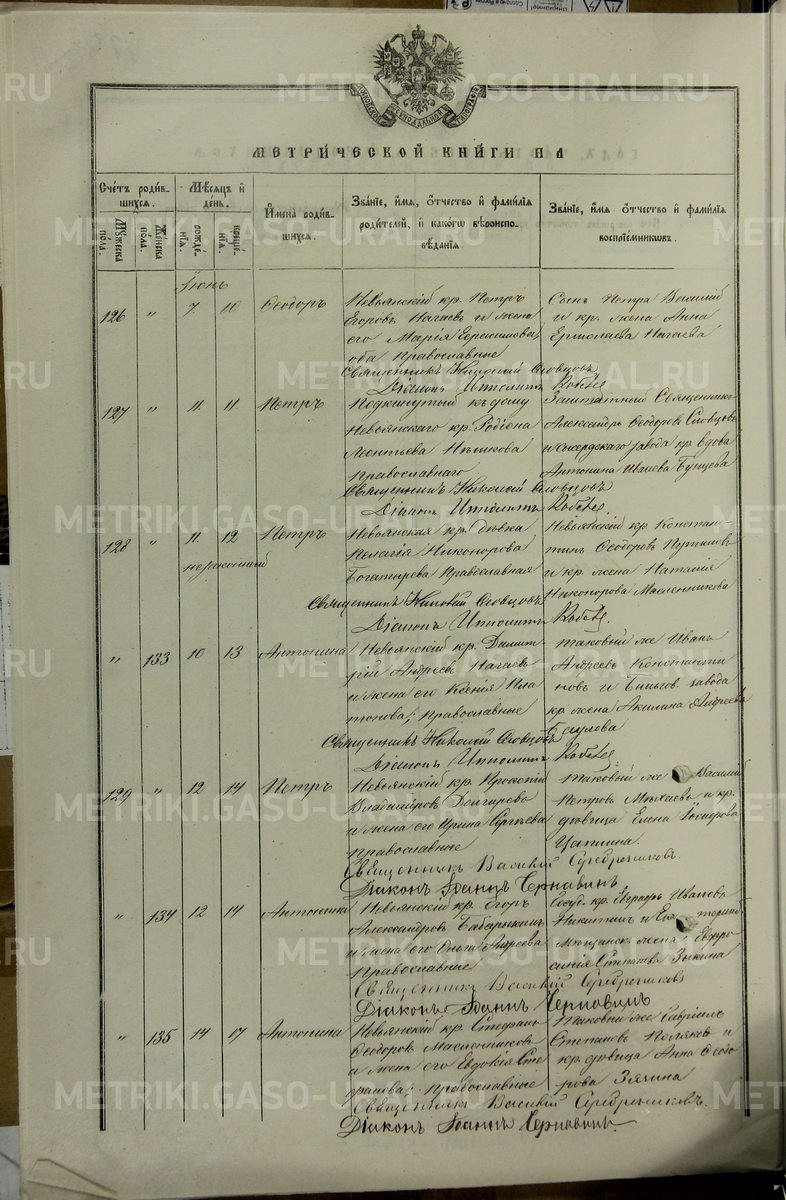 МЕТРИЧЕСКОЙ КНИГИ НА
Счетъ родившихся.
Мужеска пола.
Женска пола.
Мѣсяцъ и день.
рожденія.
крещенія.
Имена родившихся.
Званіе, имя, отчество и фамилія родителей, и какого вѣроисповѣданія.
Званіе, имя отчество и фамилія воспріемниковъ.
Іюнь
126 " 7 10 Ѳеодоръ
Невьянскій кр. Петръ
Егоровъ Нагаевъ и жена
его Марія Герасимова,
оба православные
Сынъ Петра Василій
и кр. жена Анна
Ермолаева Нагаева
Священникъ Николай Словцовъ
Діаконъ Ипполитъ
127 " 11 11 Петръ
Подкинутый къ дому
Невьянскаго кр. Родіона
Леонтьева
православнаго
Заштатный Священникъ
Александръ Ѳеодоровъ Словцовъ
и завода кр. вдова
Антонина
Священникъ Николай Словцовъ
Діаконъ Ипполитъ
128 " 11 12 Петръ
незаконный
Невьянская кр. дѣвка
Пелагія Никонорова
Богатырева Православная
Невьянскій кр. Констан-
тинъ Ѳеодоровъ
и кр. жена Наталія
Никонорова Масленникова
Священникъ Николай Словцовъ
Діаконъ Ипполитъ
" 133 10 13 Антонина
Невьянскій кр. Димит-
рій Андреевъ Нагаевъ
и жена его Ксенія Пла-
тонова; православные
таковый же Иванъ
Андреевъ Константи
новъ и завода
кр. жена Акилина Андреева
Священникъ Николай Словцовъ
Діаконъ Ипполитъ
129 " 12 14 Петръ
Невьянскій кр. Прокопій
Владиміровъ
и жена его Ирина Сергѣева
православные
таковый же Василій
Петровъ и кр.
дѣвица Елена
Священникъ Василій Серебрениковъ.
Діаконъ Іоаннъ Чернавинъ
" 134 12 14 Антонина
Невьянскій кр. Егоръ
Александровъ
и жена его Ольга Андреева
Православные
кр. Иванова
Никитинъ и
жена Евфро-
синія Степанова Зыкина
Священникъ Василій Серебрениковъ
Діаконъ Іоаннъ Чернавинъ
" 135 14 17 Антонина
Невьянскій кр. Стефанъ
Ѳеодоровъ Масленниковъ
и жена его Евдокія Сте-
фанова; православные
таковый же Гавріилъ
Степановъ Поляковъ и
кр. дѣвица Анна Ѳеодо
рова
Священникъ Василій Серебрениковъ.
Діаконъ Іоаннъ Чернавинъ
METRIKI.GASO-URAL.RU